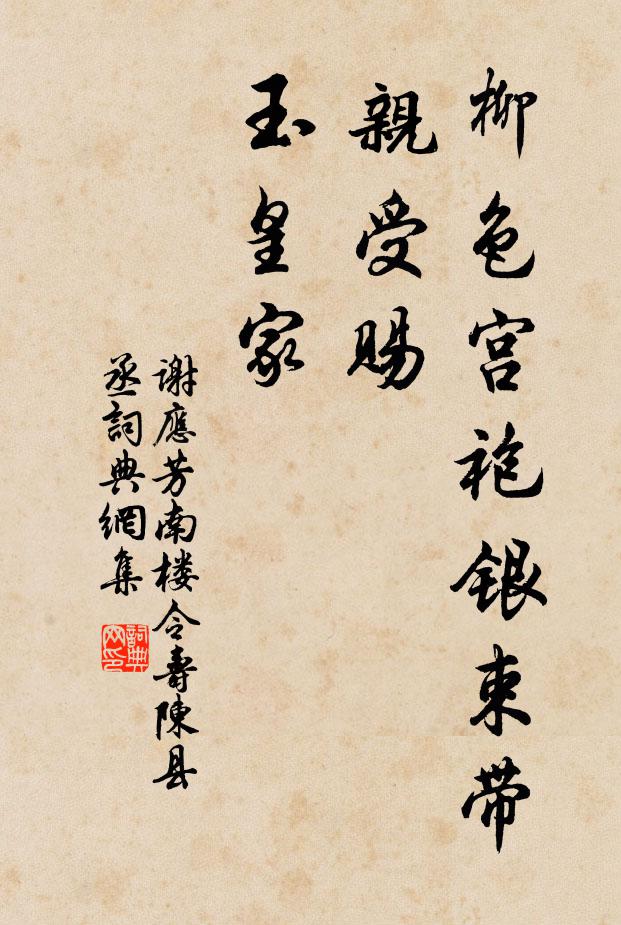 柳色宫袍銀束带
親受賜
玉皇家
谢應芳南楼令壽陳县
丞詞典網集
詞典网印